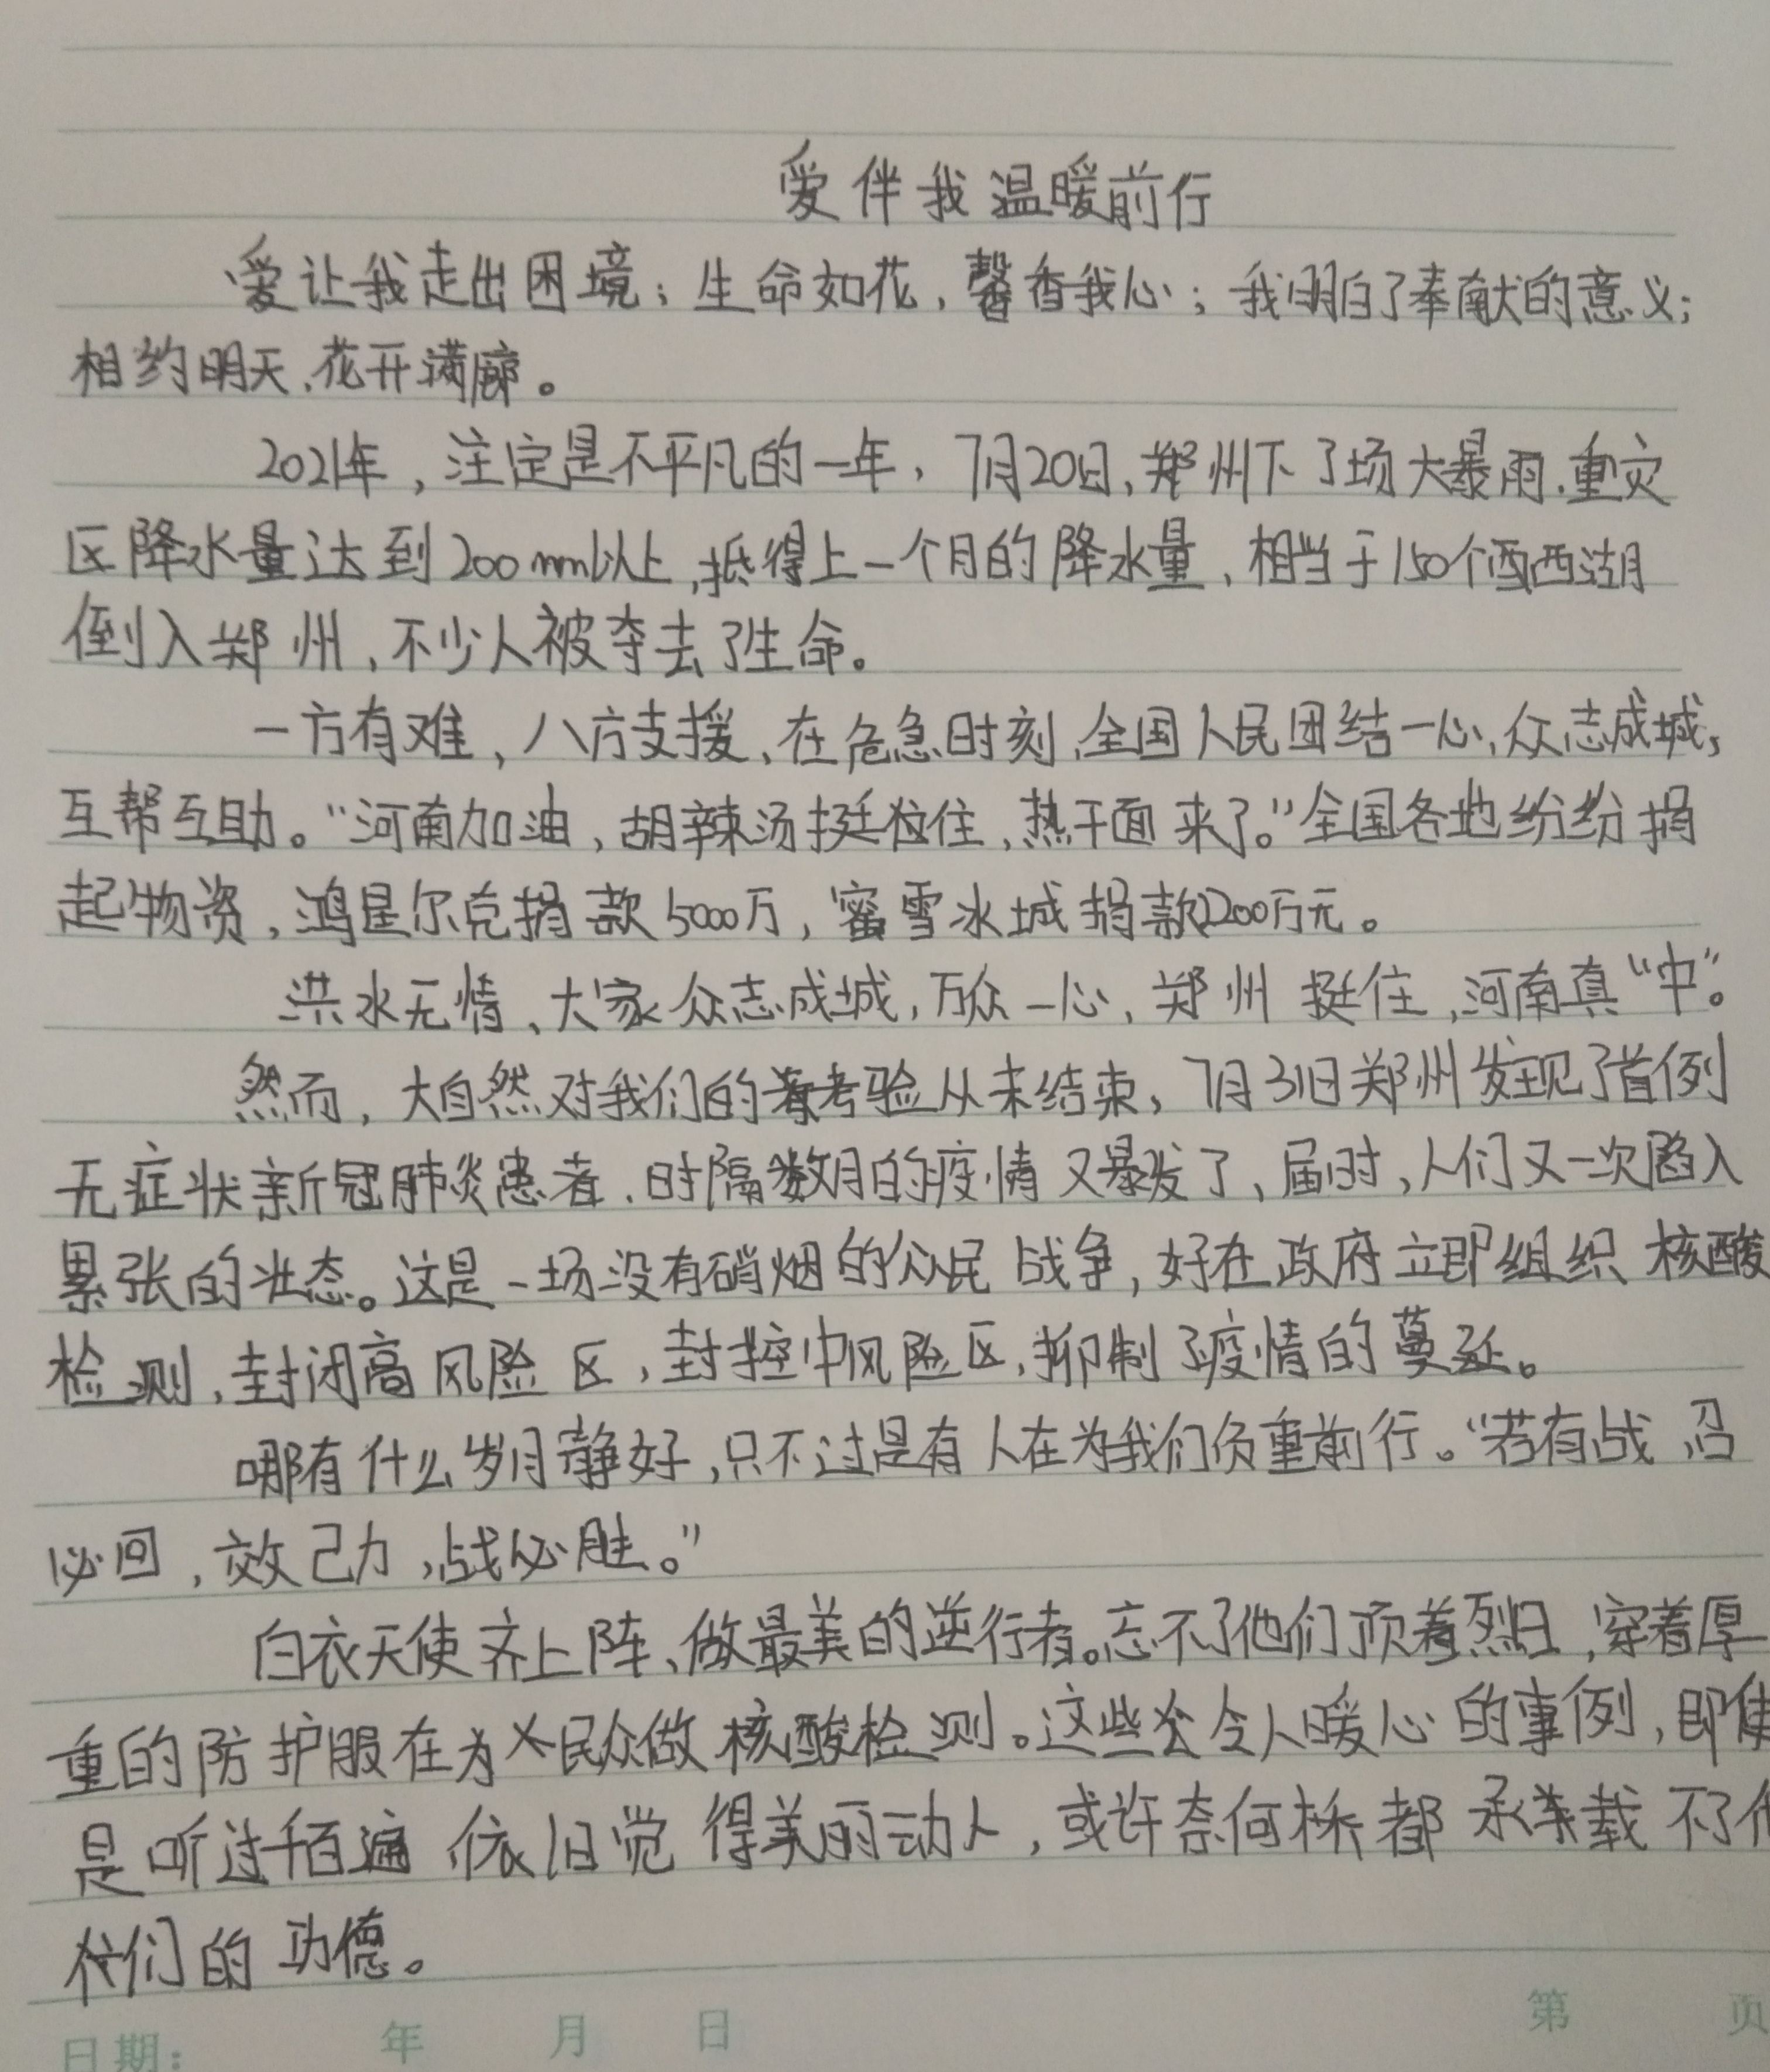 爱伴我温暖前行
爱让我走出困境；生命如花，馨香我心；我明白了奉献的意义；
相约明天，花开满廊。
2021年，注定是不平凡的一年，7月20日，郑州下了场大暴雨，重灾
区降水量达到200mm以上，抵得上一个月的降水量，相当于150个西湖
倒入郑州，不少人被夺去了生命。
一方有难，八方支援，在危急时刻，全国人民团结一心，众志成城，
互帮互助。“河南加油，胡辣汤挺住，热干面来了。”全国各地纷纷捐
起物资，鸿星尔克捐款5000万，蜜雪冰城捐款2200万元。
洪水无情，大家众志成城，万众一心，郑州挺住，河南真“中”。
然而，大自然对我们的考验从未结束，7月31日郑州发现了首例
无症状新冠肺炎患者，时隔数月的疫情又暴发了，届时，人们又一次陷入
紧张的状态。这是一场没有硝烟的人民战争，好在政府立即组织核酸
检测，封闭高风险区，封控中风险区，抑制了疫情的蔓延。
哪有什么岁月静好，只不过是有人在为我们负重前行。“若有战，召
必回，效己力，战必胜。”
白衣天使齐上阵、做最美的逆行者。忘不了他们顶着烈日，穿着厚
重的防护服在为民众做核酸检测。这些令人暖心的事例，即使
是听过千百遍 依旧觉得美丽动人，或许奈何桥都承载不了他
们的功德。
日期： 年 月 日 第 页